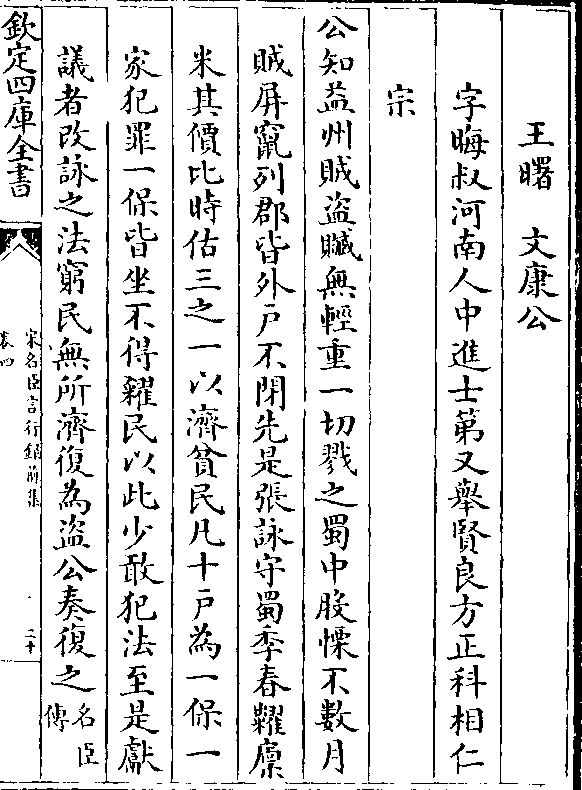 王曙　文康公
字晦叔河南人中進士第又舉賢良方正科相仁
宗
公知益州賊盜贓無輕重一切戮之蜀中股慄不數月
賊屏竄列郡皆外户不閉先是張詠守蜀季春糶廩
米其價比時估三之一以濟貧民凡十户為一保一
家犯罪一保皆坐不得糴民以此少敢犯法至是獻
議者改詠之法窮民無所濟復為盜公奏復之名臣
傳
欽定四庫全書
宋名臣言行錄前集
卷四
二十